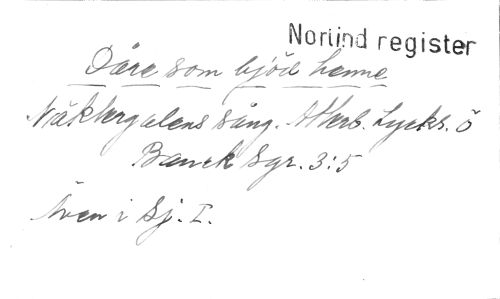 Norlind register
Dåre som bjöd henne
Näktergalens sång. Atterb. Lycks. ö
Banck Sgr. 3:5
Även i Sj. I.